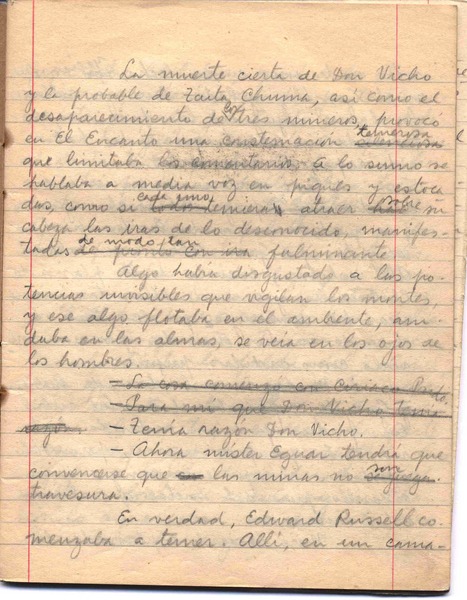 La muerte cierta de Don Vicho
y la probable de Taita Chuma, así como el
desaparecimiento de los tres mineros, provocó
en El Encanto una consternación temerosa silenciosa
que limitaba los comentarios. A lo sumo se
hablaba a media voz en piques y estoca
das, como si cada uno todos temieran atraer sobre su
cabeza las iras de lo desconocido, manifes-
tadas de modo tan fulminante
Algo había disgustado a las po-
tencias invisibles que vigilan los montes,
y ese algo flotaba en el ambiente, an-
daba en las almas, se veía en los ojos de
los hombres.
— La cosa comenzó con Ciriaco
— Para mí que Don Vicho tenía
razón — Tenía razón Don Vicho.
— Ahora míster Eguar tendrá que
convencerse que las minas no son
travesura.
En verdad, Edward Russell co-
menzaba a temer. Allí, en un cama-